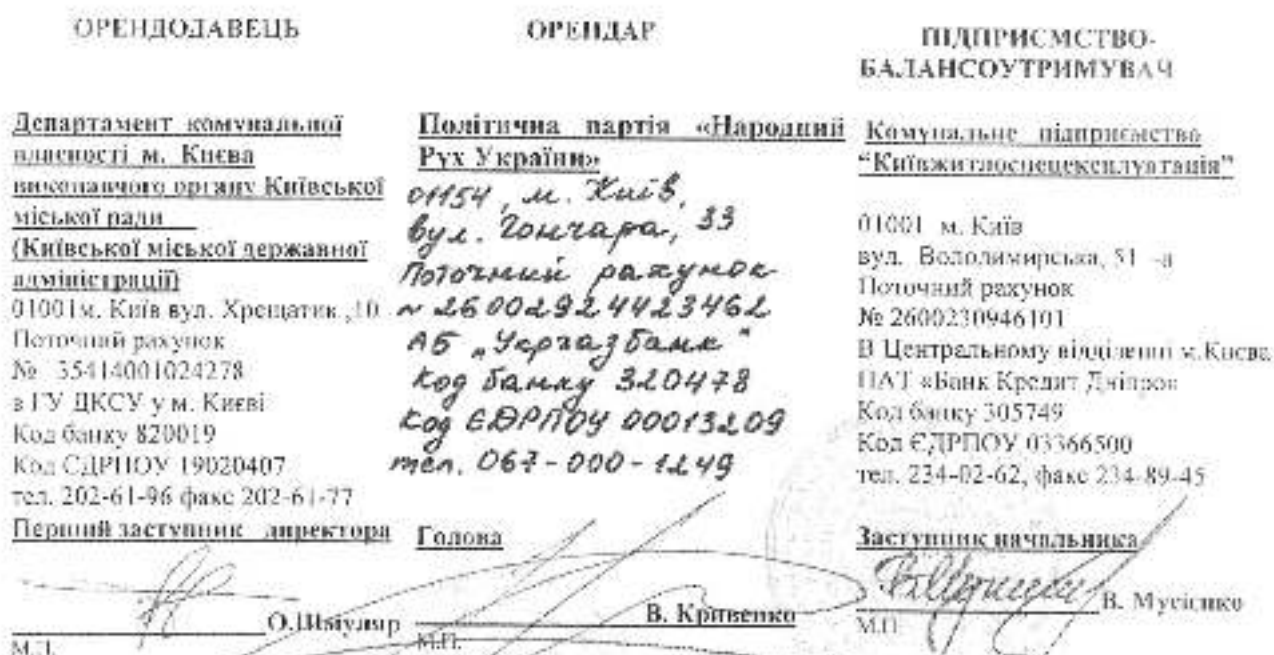 ОРЕНДОДАВЕЦЬ
Департамент комунальної
власності м. Києва
виконавчого органу Київської
міської ради
(Київської міської державної
адміністрації)
01001м. Київ вул. Хрещатик ,10
Поточний рахунок
№ 35414001024278
в ГУ ДКСУ у м. Києві
Код банку 820019
Код ЄДРПОУ 19020407
тел. 202-61-96 факс 202-61-77
Перший заступник директора
О.Шпіуляр
М.П.
ОРЕНДАР
Політична партія «Народний
Рух України»
01154, м. Київ,
вул. Гончара, 33
Поточний рахунок
№ 26002924423462
АБ „Укргазбанк"
Код банку 320478
Код ЄДРПОУ 00013209
тел. 067-000-1249
Голова
В. Кривенко
М.П.
ПІДПРИЄМСТВО-
БАЛАНСОУТРИМУВАЧ
Комунальне підприємство
“Київжитлоспецексплуатація”
01001 м. Київ
вул. Володимирська, 51 -а
Поточний рахунок
№ 2600230946101
В Центральному відділенні м.Києва
ПАТ «Банк Кредит Дніпро»
Код банку 305749
Код ЄДРПОУ 03366500
тел. 234-02-62, факс 234-89-45
Заступник начальника
В. Мусієнко
М.П.